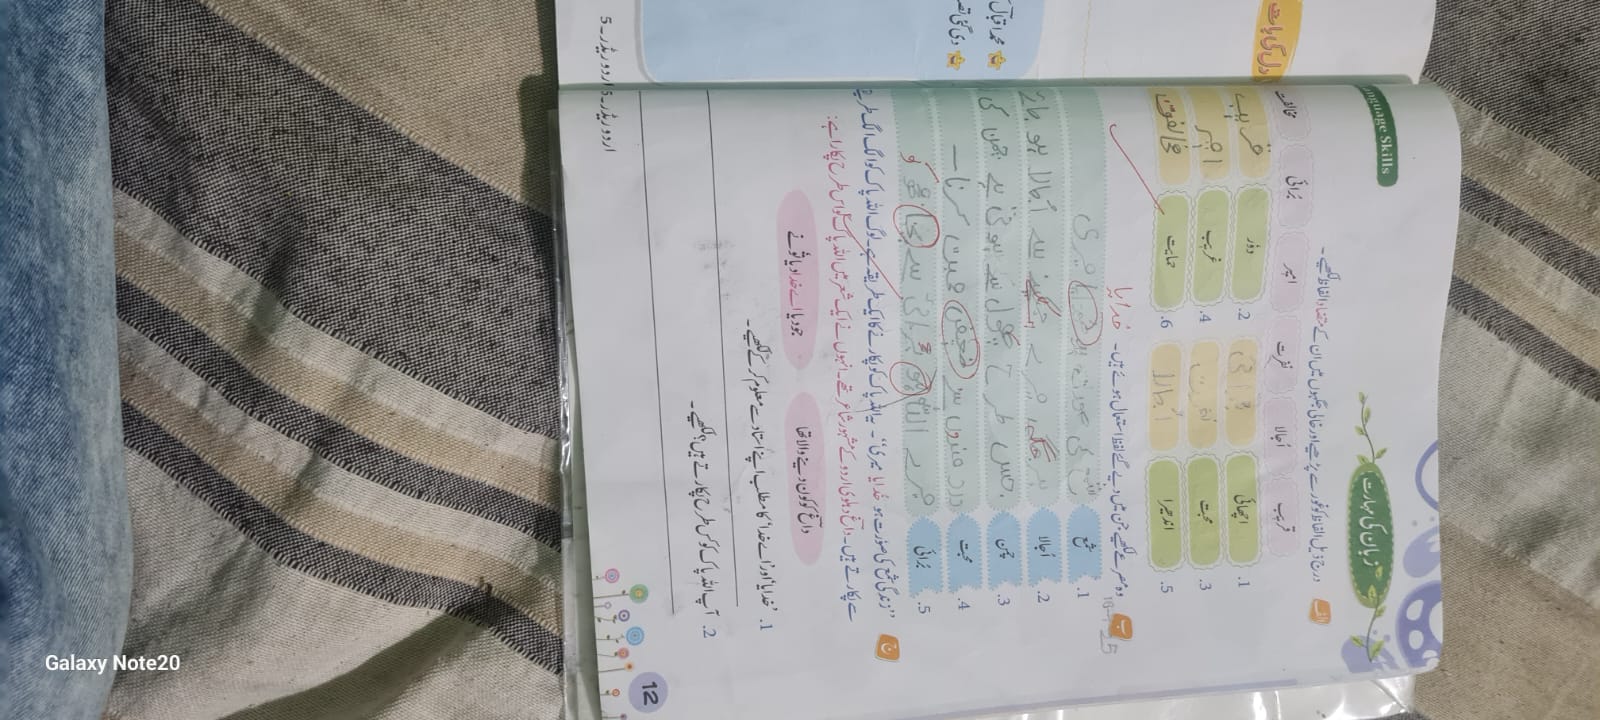 anguage Skills
زبان کی مہارت
الف درج ذیل الفاظ کو غور سے پڑھیے اور خالی جگہوں میں ان کے متضاد الفاظ لکھیے۔
قریب اُجالا نفرت امیر بُرائی مخالفت
1. اچھائی بُرائی 2. دوُر قریب
3. محبت 4. غریب امیر
5. اندھیرا اُجالا 6. حمایت مخالفت
ب وہ مصرعے لکھیے جن میں دیے گئے لفظ استعمال ہوئے ہیں۔ خدایا
1. شمع شمع کی صورت میری
2. اُجالا ہر جگہ میرے چمکنے سے اُجالا ہو جائے
3. چمن جس طرح پھول سے ہوتی ہے چمن کی
4. محبت درد مندوں سے محبت کرنا
5. بُرائی میرے اللہ بُرائی سے بچا کو
ج "زندگی شمع کی صوُرت ہو خدایا میری"۔ یہ اللہ پاک کو پکارنے کا ایک طریقہ ہے۔ لوگ اللہ پاک کو الگ الگ طریقے
سے پکارتے ہیں۔ داغ دہلوی اردو کے مشہور شاعر تھے۔ انہوں نے ایک شعر میں اللہ پاک کو اس طرح پکارا ہے:
داغ کو کون دینے والا تھا جو دیا اے خدا دیا تُو نے
1. 'خدایا' اور 'اے خدا' کا مطلب اپنے استاد سے معلوم کر کے لکھیے۔
2. آپ اللہ پاک کو کس طرح پکارتے ہیں؟ لکھیے۔
12
اردو ریڈر۔5
دل کی بات
محمد اقبال
دی گئی
اردو ریڈر۔5
Galaxy Note20